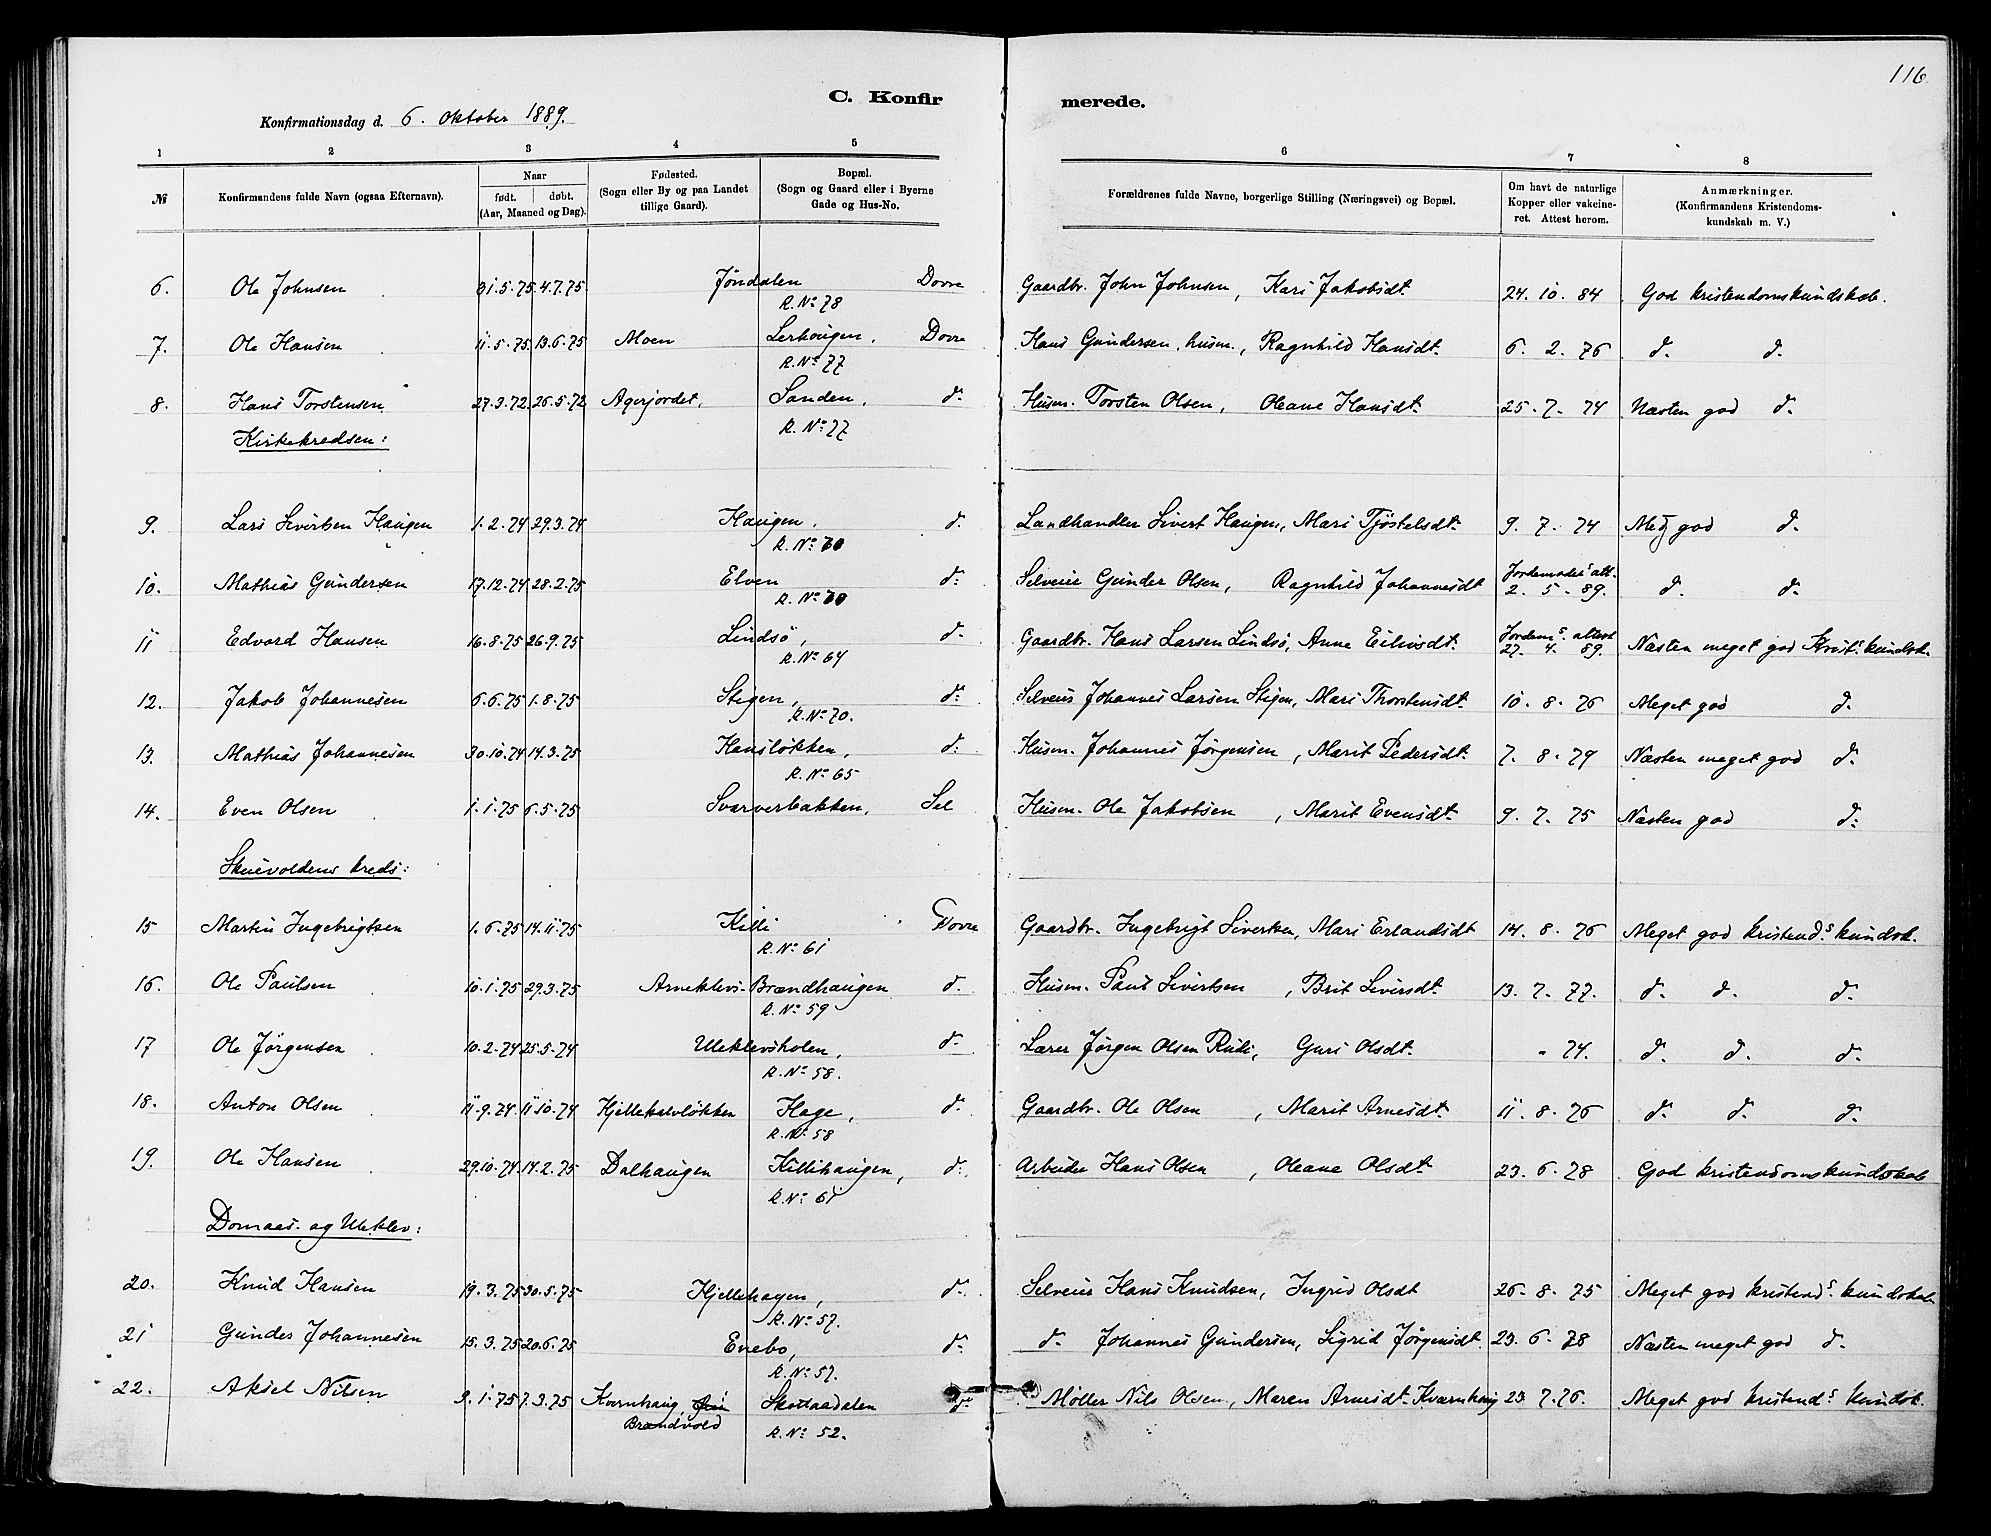 116.
C. Konfirmerede.
Konfirmationsdag d. 6. Oktober 1889.
1 2 3 4 5 6 7 8
№ Konfirmandens fulde Navn (ogsaa Efternavn). Naar født. døbt. (Aar, Maaned og Dag). Fødested. (Sogn eller By og paa Landet tillige Gaard). Bopæl. (Sogn og Gaard eller i Byerne Gade og Hus-No. Forældrenes fulde Navne, borgerlige Stilling (Næringsvei) og Bopæl. Om havt de naturlige Kopper eller vakcineret. Attest herom. Anmærkninger. (Konfirmandens Kristendomskundskab m. V.)
6. Ole Johnsen 31.5.75 4.7.75 Jøndalen R.No 78 Dovre Gaardbr. John Johnsen, Kari Jakobsdt. 24.10.84 God kristendomskundskab.
7. Ole Hansen 11.5.75 13.6.75 Moen Lerhougen. R.No 77 Dovre Hans Gundersen, husm., Ragnhild Hansdt. 6.2.76 d. d.
8. Hans Torstensen 27.3.72 26.5.72 Agerjordet, Sanden, R.No 77 d. Husm. Torsten Olsen, Oleane Hansdt. 25.7.74 Næsten god d.
Kirkekredsen:
9. Lars Sivertsen Haugen 1.2.74 29.3.74 Haugen, R.No 70 d. Landhandler Sivert Haugen, Mari Tjøstelsdt. 9.7.74 Meg god d.
10. Mathias Gundersen 17.12.74 28.2.75 Elven R.No 70 d: Selveier Gunder Olsen, Ragnhild Johannesdt Jordemoders att. 2.5.89. d. d.
11 Edvard Hansen 16.8.75 26.9.75 Lindsø, R.No 64 d. Gaardbr. Hans Larsen Lindsø, Anne Eilivsdt. Jordems attest 27.4.89. Næsten meget god Krist. kundsk.
12. Jakob Johannesen 6.6.75 1.8.75 Stigen, R.No 70. d: Selveier Johannes Larsen Stigen, Mari Thorstensdt. 10.8.76 Meget god d.
13. Mathias Johannesen 30.10.74 14.3.75 Hansløkken, R.No 65 d: Husm. Johannes Jørgensen, Marit Pedersdt. 7.8.79 Næsten meget god d.
14. Even Olsen 1.1.75 6.5.75 Svarverbakken, Sel Husm. Ole Jakobsen, Marit Evensdt. 9.7.75 Næsten god d:
Skuevoldens kreds:
15 Martin Ingebrigtsen 1.6.75 14.11.75 Killi R.No 61 Dovre Gaardbr. Ingebrigt Sivertsen, Mari Erlandsdt 14.8.76 Meget god kristends kundsk.
16. Ole Paulsen 10.1.75 29.3.75 Arneklevs-Brændhaugen R.No 59 d. Husm. Paul Sivertsen, Brit Siversdt. 13.7.77. d. d. d.
17 Ole Jørgensen 10.2.74 25.5.74 Uleklevsholen, R.No 58. d. Lærer Jørgen Olsen Rusti, Guri Olsdt. " 74. d. d. d.
18. Anton Olsen 11.9.74 11.10.74 Hjellekalvløkken Hage, R.No 58 d. Gaardbr. Ole Olsen, Marit Arnesdt. 11.8.76 d. d. d.
19. Ole Hansen 29.10.74 14.2.75 Dalhaugen Killihaugen, R.No 61 d: Arbeider Hans Olsen, Oleane Olsdt. 23.6.78 God kristendomskundskab
Domaas- og Uleklev:
20. Knud Hansen 19.3.75 30.5.75 Hjellehagen, R.No 57. d. Selveier Hans Knudsen, Ingrid Olsdt 26.8.75 Meget god kristends kundskab
21 Gunder Johannesen 15.3.75 20.6.75 Enebo, R.No 57. d. d. Johannes Gundersen, Sigrid Jørgensdt. 23.6.78 Næsten meget god d.
22. Aksel Nilsen 9.1.75 7.3.75 Kvernhaug, Brændvold Skottaadalen R.No 52. d. Møller Nils Olsen, Maren Arnesdt. Kværnhaug 23.7.76. Meget god kristends kundsk.